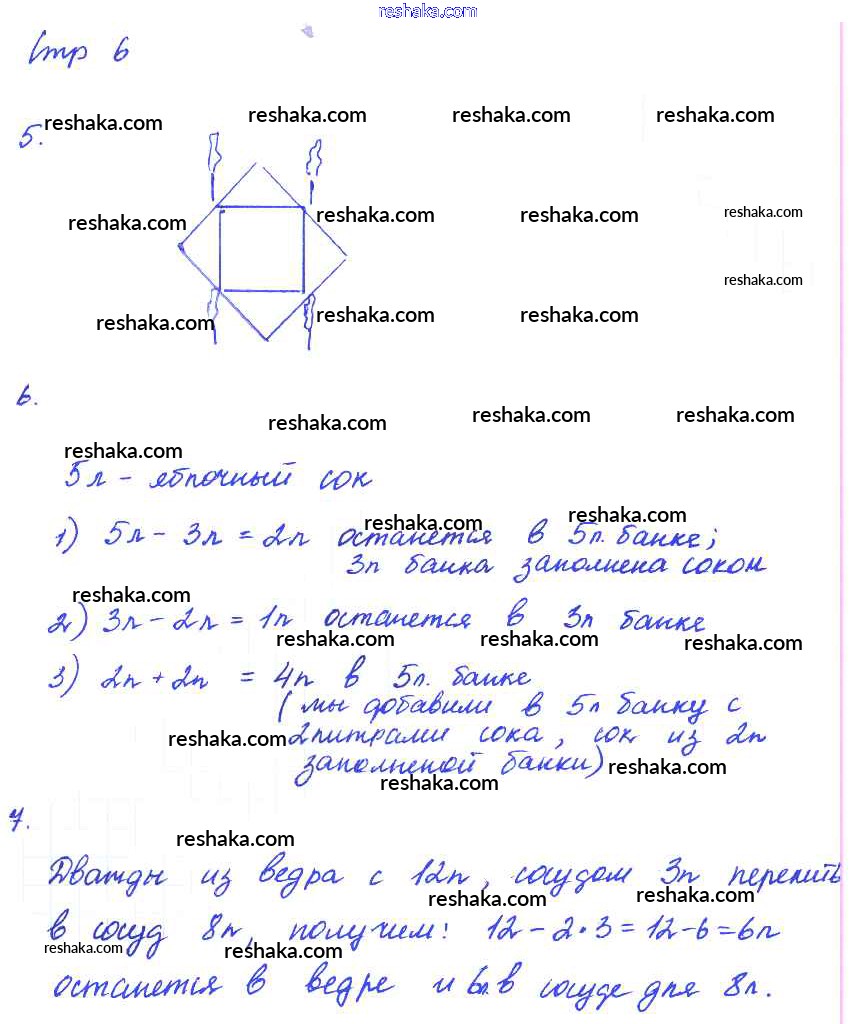 reshaka.com
Стр 6
reshaka.com reshaka.com reshaka.com reshaka.com
5.
reshaka.com reshaka.com reshaka.com reshaka.com
reshaka.com
reshaka.com reshaka.com reshaka.com
6.
reshaka.com reshaka.com reshaka.com
reshaka.com
5л - яблочный сок
reshaka.com reshaka.com
1) 5л - 3л = 2л останется в 5л. банке;
3л банка заполнена соком
reshaka.com
2) 3л - 2л = 1л останется в 3л банке
reshaka.com reshaka.com reshaka.com
3) 2л + 2л = 4л в 5л. банке
(мы добавили в 5л банку с
reshaka.com 2литрами сока, сок из 2л
заполненой банки) reshaka.com
reshaka.com
7.
reshaka.com
Дважды из ведра с 12л, сосудом 3л перелить
reshaka.com reshaka.com
в сосуд 8л, получим: 12 - 2·3 = 12 - 6 = 6л
reshaka.com reshaka.com
останется в ведре и 6л в сосуде для 8л.